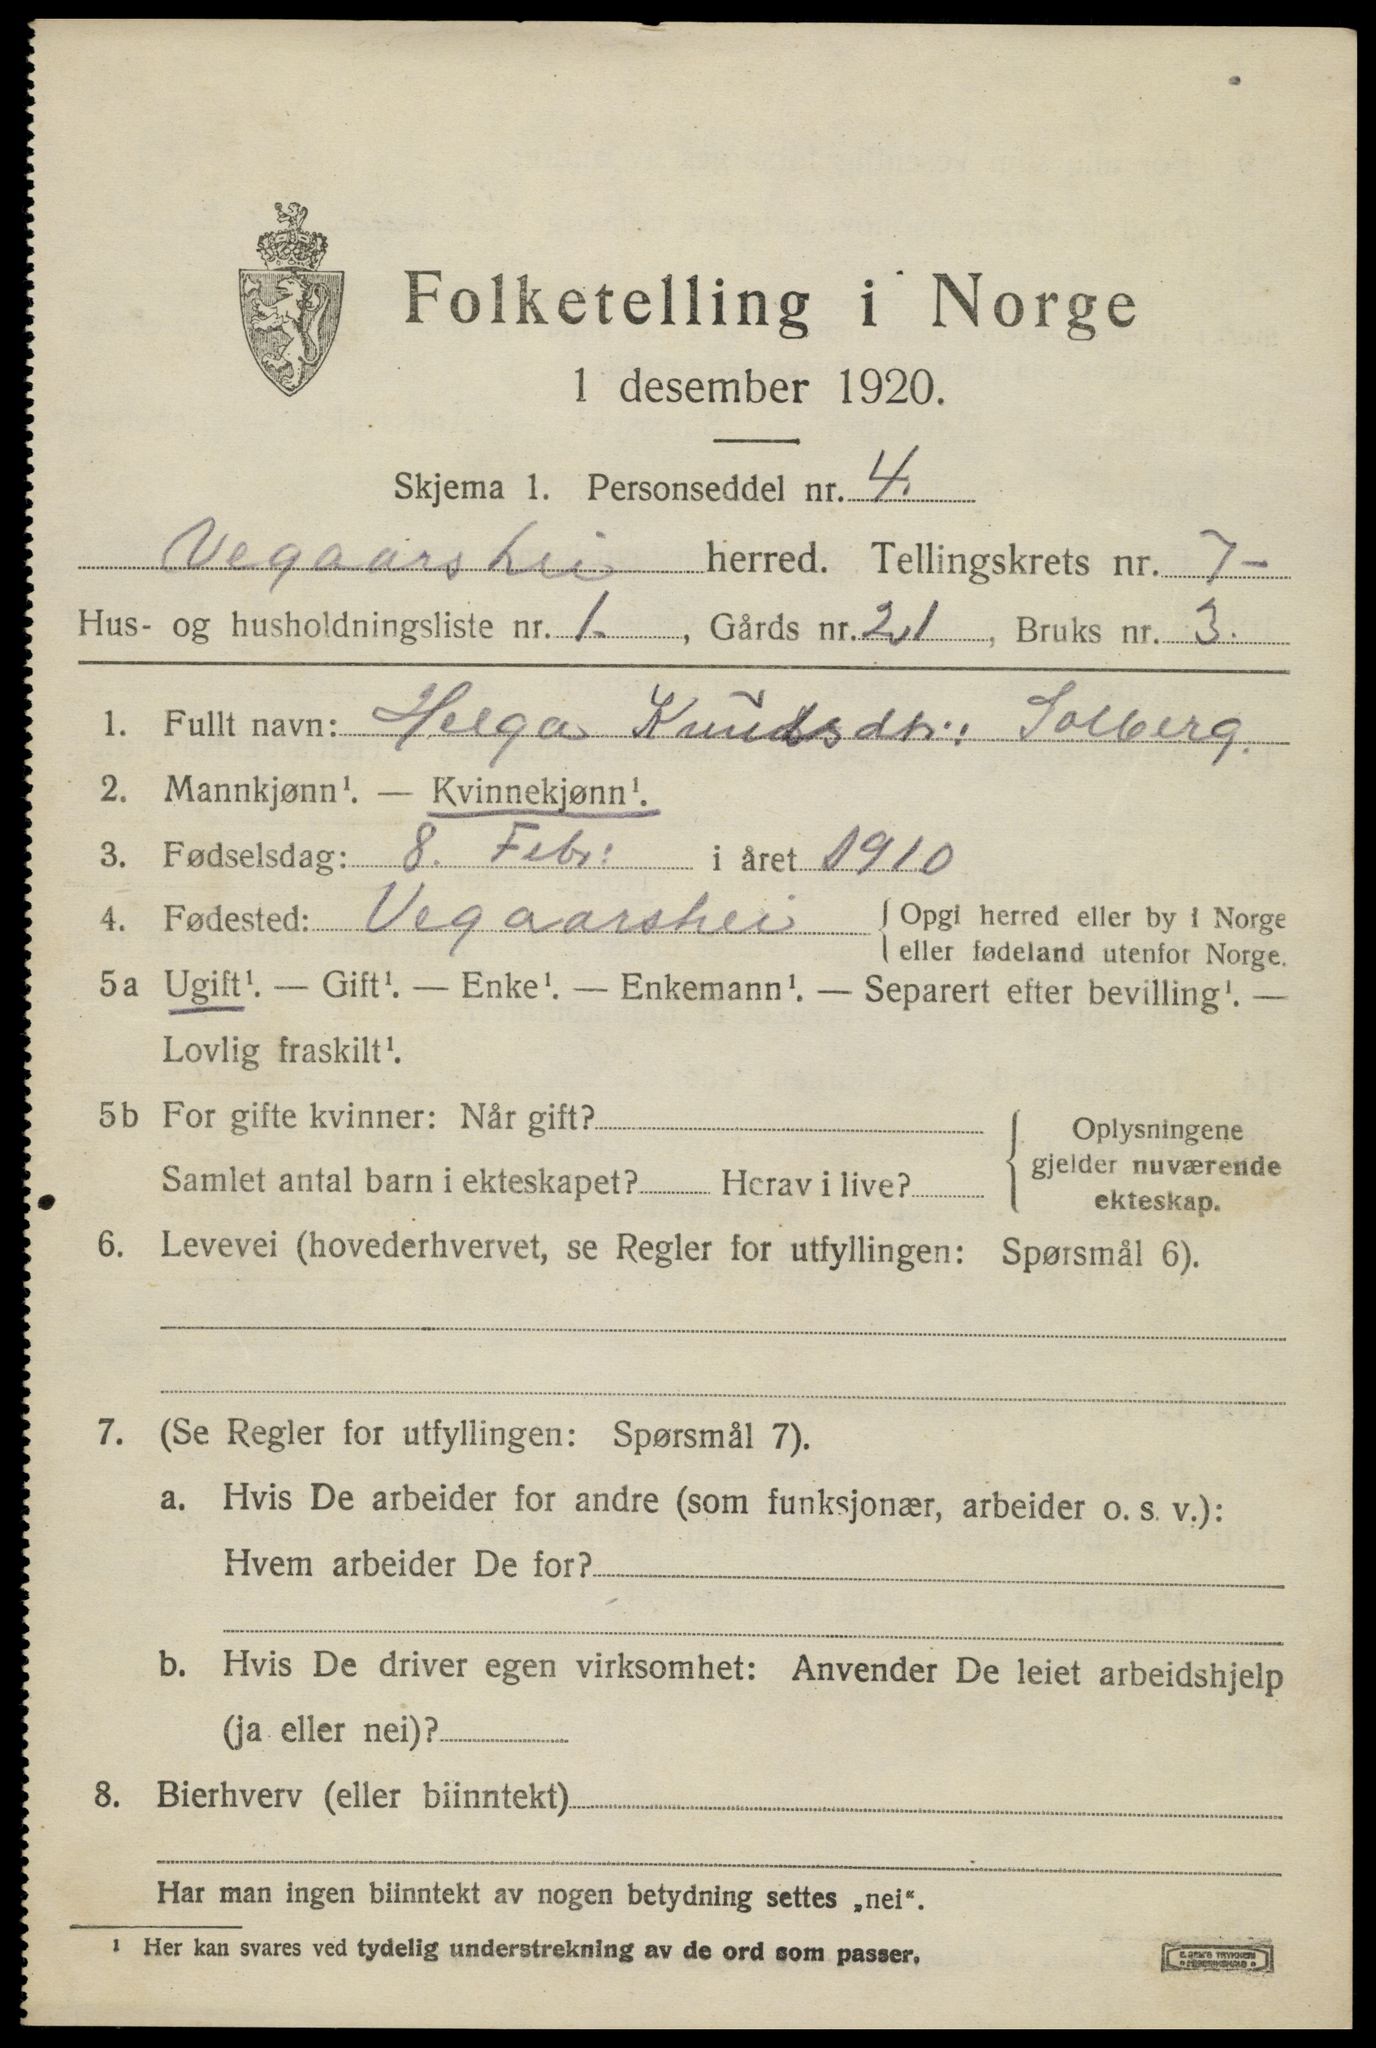 Folketelling i Norge
1 desember 1920.
Skjema 1. Personseddel nr. 4.
Vegaarshei herred. Tellingskrets nr. 7-
Hus- og husholdningsliste nr. 1., Gårds nr. 21, Bruks nr. 3.
1. Fullt navn: Helga Knudsdtr: Solberg.
2. Mannkjønn¹. — Kvinnekjønn¹.
3. Fødselsdag: 8. Febr: i året 1910
4. Fødested: Vegaarshei { Opgi herred eller by i Norge
eller fødeland utenfor Norge.
5a Ugift¹. — Gift¹. — Enke¹. — Enkemann¹. — Separert efter bevilling¹. —
Lovlig fraskilt¹.
5b For gifte kvinner: Når gift? { Oplysningene
gjelder nuværende
Samlet antal barn i ekteskapet? Herav i live?
ekteskap.
6. Levevei (hovederhvervet, se Regler for utfyllingen: Spørsmål 6).
7. (Se Regler for utfyllingen: Spørsmål 7).
a. Hvis De arbeider for andre (som funksjonær, arbeider o. s. v.):
Hvem arbeider De for?
b. Hvis De driver egen virksomhet: Anvender De leiet arbeidshjelp
(ja eller nei)?
8. Bierhverv (eller biinntekt)
Har man ingen biinntekt av nogen betydning settes „nei“.
¹ Her kan svares ved tydelig understrekning av de ord som passer.